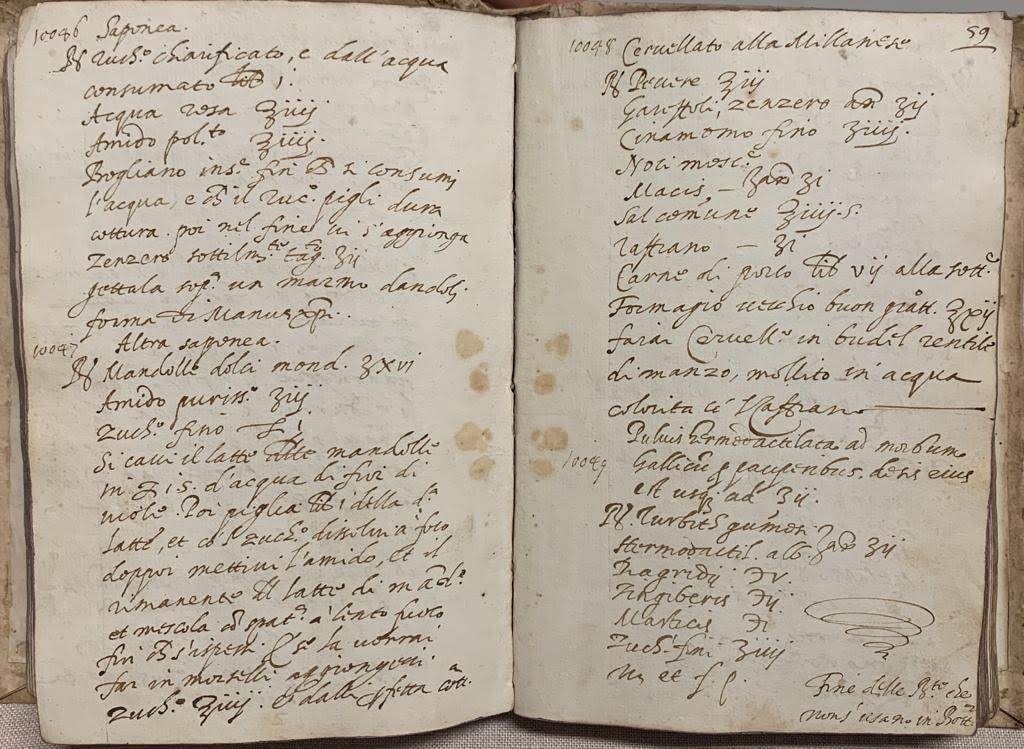 10046 Saponea.
℞ Zucho. chiarificato, e dall'acqua
consumato lib i
Acqua rosa ʒiiij
Amido pol.to ʒiiij.
Bogliano ins.e fin si consumi
l'acqua, e il zuc.o pigli dura
cottura. poi nel fine vi s'aggionga
Zenzero sottilm.te ʒij
gettala sop.a un marmo dandoli
forma di
10047
Altra saponea.
℞ Mandolle dolci mond. ʒxvi
Amido puriss.o ʒiij
Zuch.o fino
Si cavi il latte mandolle
in d'acqua di fior di
Poi piglia lib i della d.a
latte, et zuch.o dissolvi a foco
doppoi mettivi l'amido, et il
rimanente latte di mand.e
et mescola a lento fuoco
fin se la vorrai
far in morselli aggiongevi
zuch.o ʒiiij. e dalli pfetta cott.a
59
10048 Cervellato alla Millanese
℞ Pevere ʒiij
Garoffoli, zenzero an ʒij
Cinamomo fino ʒiiij.
Noci mosc.e
Macis, – an ʒi
Sal comune ʒiiij s.
zaffrano – ʒi
Carne di porco lib vij alla sott.e
Formagio vecchio buon gratt. ʒxij
farai Cervell.o in budel zentile
di manzo, mollito in acqua
colorita Zaffrano
10049
Pulvis hermodactilata ad morbum
Gallicũ p pauperibus. dosis eius
est usq ad ʒij.
℞ Turbith gumosi
Hermodactil. alb. an ʒij
Diagridij ℈v.
Zingiberis ℈ij
Mastices ℈i
Zuch.i fini ʒiiij
m. et f. p.
Fine delle R.te che
non s'usano in Bott.a